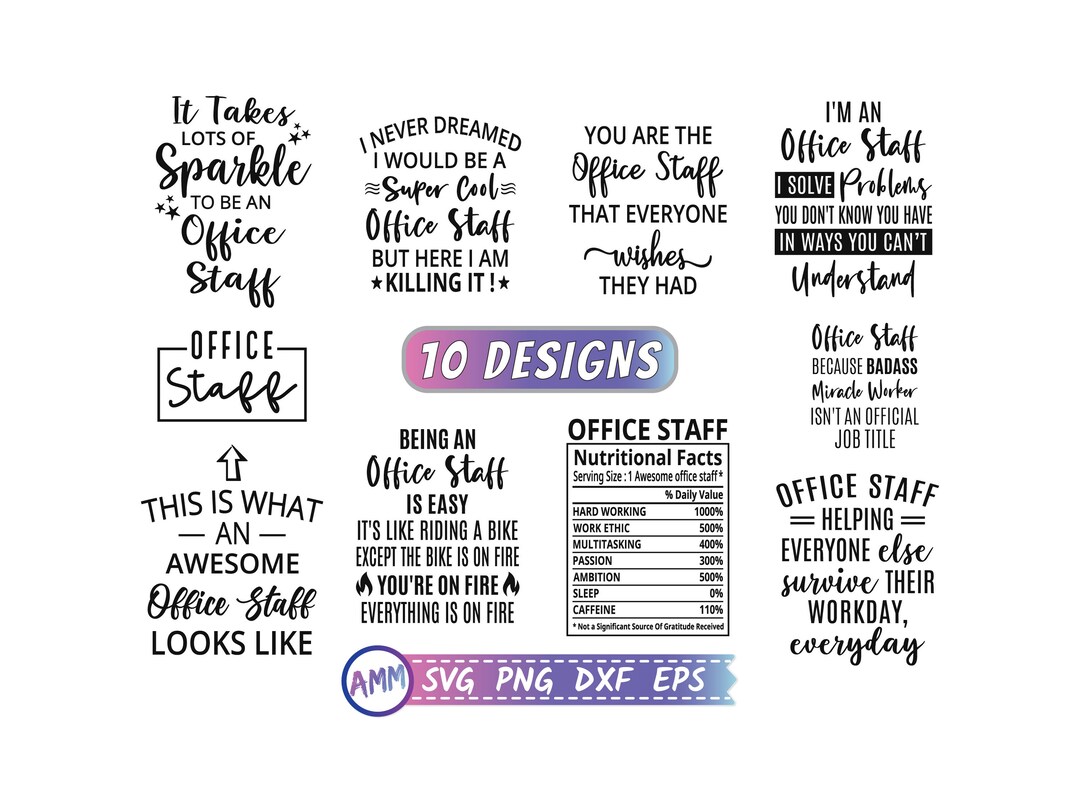 It Takes
LOTS OF
Sparkle
TO BE AN
Office
Staff
I NEVER DREAMED
I WOULD BE A
Super Cool
Office Staff
BUT HERE I AM
KILLING IT !
YOU ARE THE
Office Staff
THAT EVERYONE
wishes
THEY HAD
I'M AN
Office Staff
I SOLVE Problems
YOU DON'T KNOW YOU HAVE
IN WAYS YOU CAN'T
Understand
OFFICE
Staff
10 DESIGNS
Office Staff
BECAUSE BADASS
Miracle Worker
ISN'T AN OFFICIAL
JOB TITLE
THIS IS WHAT
AN
AWESOME
Office Staff
LOOKS LIKE
BEING AN
Office Staff
IS EASY
IT'S LIKE RIDING A BIKE
EXCEPT THE BIKE IS ON FIRE
YOU'RE ON FIRE
EVERYTHING IS ON FIRE
OFFICE STAFF
Nutritional Facts
Serving Size : 1 Awesome office staff*
% Daily Value
HARD WORKING 1000%
WORK ETHIC 500%
MULTITASKING 400%
PASSION 300%
AMBITION 500%
SLEEP 0%
CAFFEINE 110%
* Not a Significant Source Of Gratitude Received
OFFICE STAFF
HELPING
EVERYONE else
survive THEIR
WORKDAY,
everyday
AMM SVG PNG DXF EPS